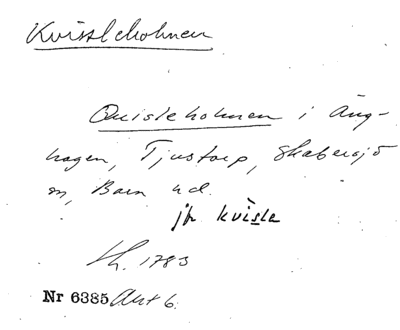 Kvissleholmen
Quisleholmen i Äng-
hagen, Tjustorp, Skabersjö
sn, Bara hd.
jfr kvisle
Sk. 1783
Nr 6385 Akt 6.